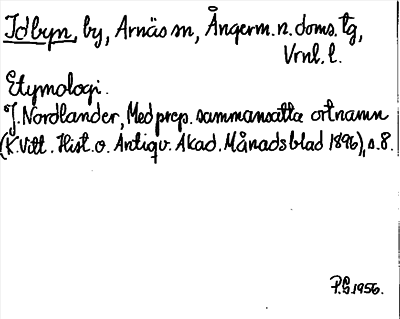 Idbyn, by, Arnäs sn, Ångerm. n. doms. tg,
Vrnl. l.
Etymologi.
J. Nordlander, Med prep. sammansatta ortnamn
(K. Vitt. Hist. o. Antiqv. Akad. Månadsblad 1896), s. 8.
P.G. 1956.